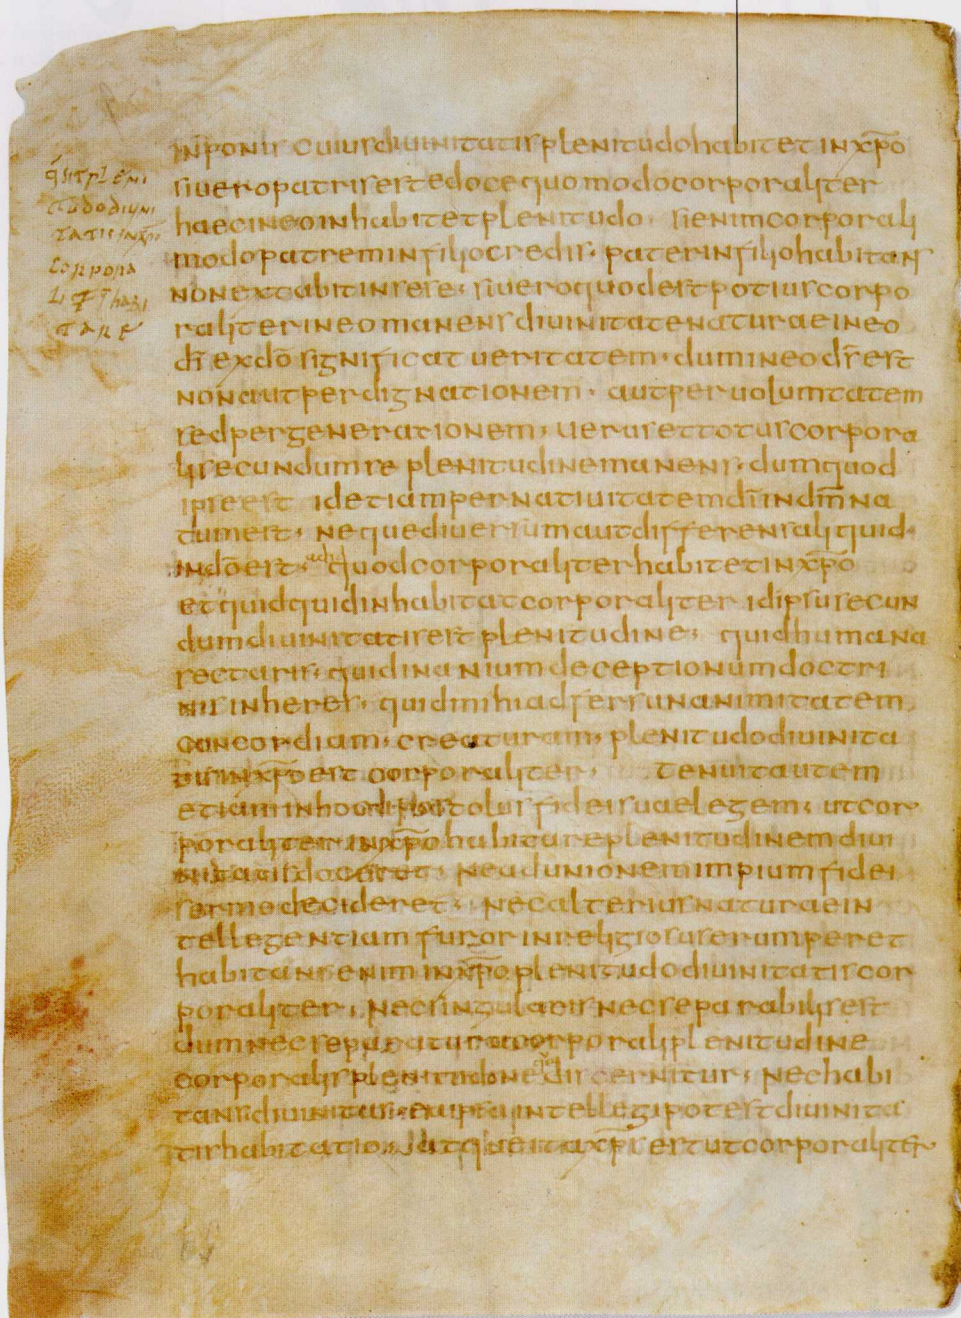 q̇ sit pleni
tudo diuini
tatis in xp̄o
corpora
habi
tare
inponis cuius diuinitatis plenitudo habitet in xp̄o
si uero patris est edoce quomodo corporaliter
haec in eo inhabitet plenitudo · si enim corporali
modo patrem in filio credis · pater in filio habitans
non extabit in sese · si uero quod est potius corpo
raliter in eo manens diuinitate naturae in eo
dī ex dō significat ueritatem · dum in eo dс̄ est
non aut per dignationem · aut per uolumtatem
sed per generationem · uerus et totus corpora
li secundum se plenitudine manens · dum quod
ipse est id etiam per natiuitatem dī in dm̄ na
tum est · neque diuersum aut differens aliquid ·
in dō est · quod corporaliter habitet in xp̄o
et quidquid inhabitat corporaliter id ipsu secun
dum diuinitatis est plenitudine · quid humana
sectaris · quid inanium deceptionum doctri
nis inheres · quid mihi adfers unanimitatem
concordiam · creaturam · plenitudo diuinita
tis in xp̄o est corporaliter · tenuit autem
etiam in hoc apostolus fidei suae legem · ut cor
poraliter in xp̄o habitare plenitudinem diui
nitatis doceret · ne ad unionem impium fidei
sermo decideret · nec alterius naturae in
tellegentiam furor inreligiosus erumperet
habitans enim in xp̄o plenitudo diuinitatis cor
poraliter · nec singularis nec separabilis est
dum nec separatur a corporali plenitudine
corporalis plenitudo ne discernitur · nec habi
tans diuinitas · ea ipsa intellegi potest diuinita
tis habitatio · atque ita xp̄s est ut corporaliter